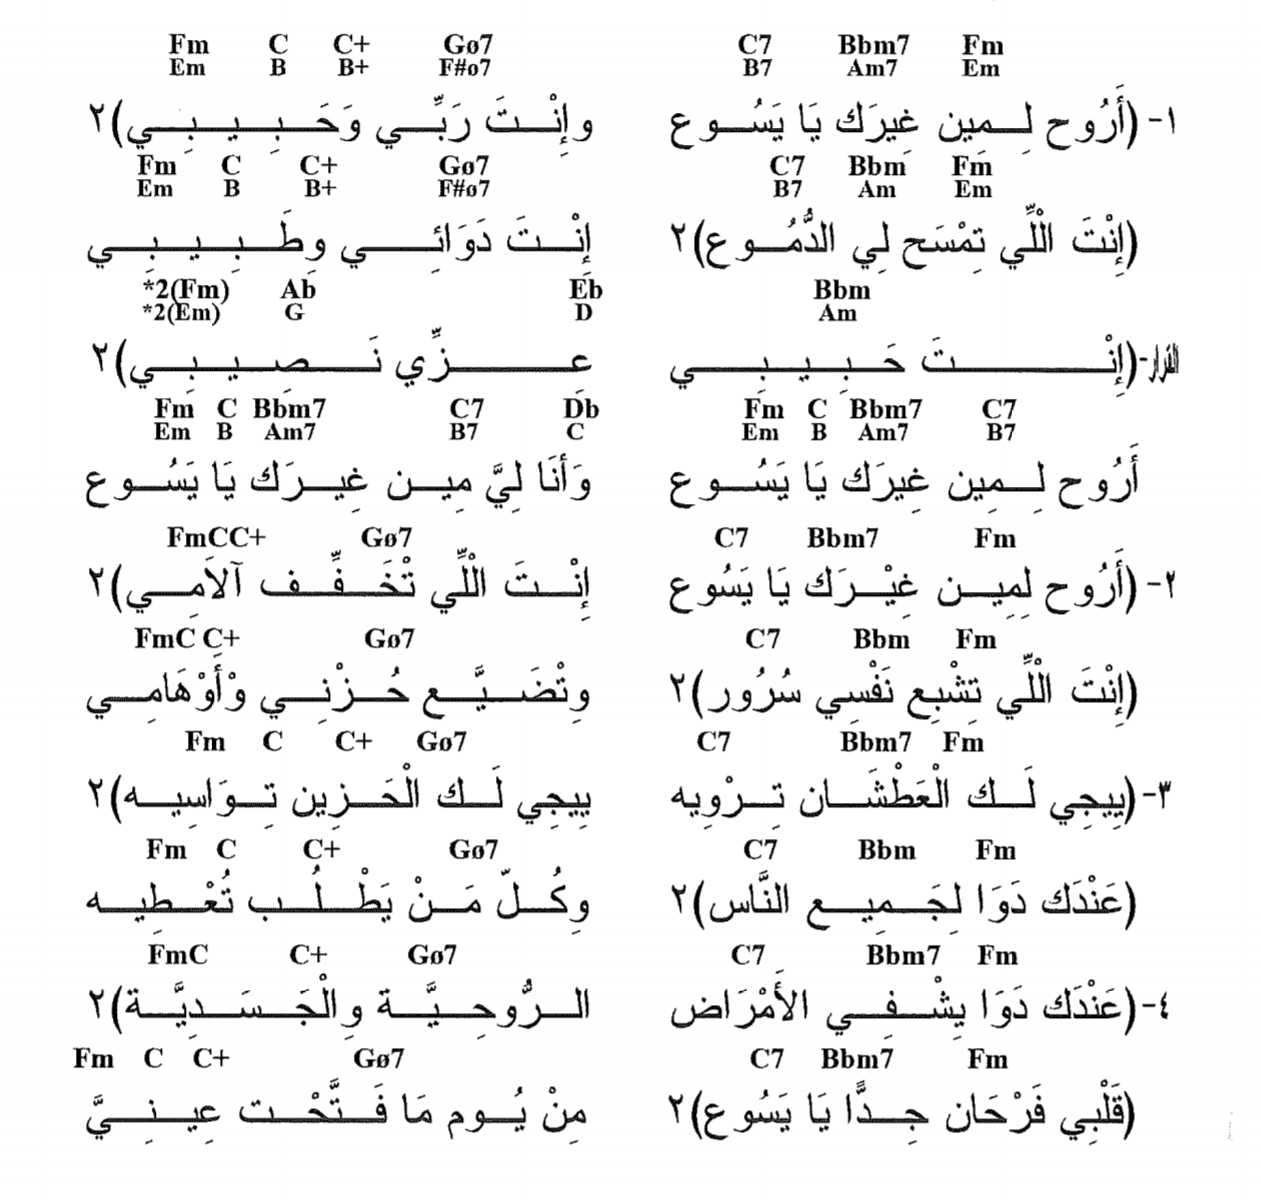 Fm C C+ Gø7 C7 Bbm7 Fm
Em B B+ F#o7 B7 Am7 Em
١- (أَرُوح لِـمِين غِيرَك يَا يَسُـوع وإِنْـتَ رَبِّـي وَحَـبِـيـبِـي)٢
Fm C C+ Gø7 C7 Bbm Fm
Em B B+ F#o7 B7 Am Em
(إِنْتَ الْلِّي تِمْسَح لِي الدُّمُـوع)٢ إِنْـتَ دَوَائِـي وطَـبِـيـبِـي
*2(Fm) Ab Eb Bbm
*2(Em) G D Am
القرار-(إِنْـتَ حَـبِـيـبِـي عـزِّي نَـصِـيـبِـي)٢
Fm C Bbm7 C7 Db Fm C Bbm7 C7
Em B Am7 B7 C Em B Am7 B7
أَرُوح لِـمِين غِيرَك يَا يَسُـوع وَأنَا لِيَّ مِيـن غِيـرَك يَا يَسُـوع
FmCC+ Gø7 C7 Bbm7 Fm
٢- (أَرُوح لِمِيـن غِيْـرَك يَا يَسُوع إِنْـتَ الْلِّي تْخَـفِّـف آلاَمِـي)٢
FmC C+ Gø7 C7 Bbm Fm
(إِنْتَ الْلِّي تِشْبِع نَفْسِي سُرُور)٢ وِتْضَـيَّـع حُـزْنِـي وْأَوْهَامِـي
Fm C C+ Gø7 C7 Bbm7 Fm
٣- (يِيجِي لَـك الْعَطْشَـان تِـرْوِيه يِيجِي لَـك الْحَـزِين تِـوَاسِيـه)٢
Fm C C+ Gø7 C7 Bbm Fm
(عَنْدَك دَوَا لِجَـمِيـع النَّاس)٢ وِكُـلّ مَـنْ يَطْـلُـب تُعْـطِيـه
FmC C+ Gø7 C7 Bbm7 Fm
٤- (عَنْدَك دَوَا يِشْـفِـي الأَمْرَاض الـرُّوحِـيَّـة وِالْجَـسَـدِيَّـة)٢
Fm C C+ Gø7 C7 Bbm7 Fm
(قَلْبِي فَرْحَان جِـدًّا يَا يَسُوع)٢ مِنْ يُـوم مَا فَـتَّحْـت عِيـنِـيَّ